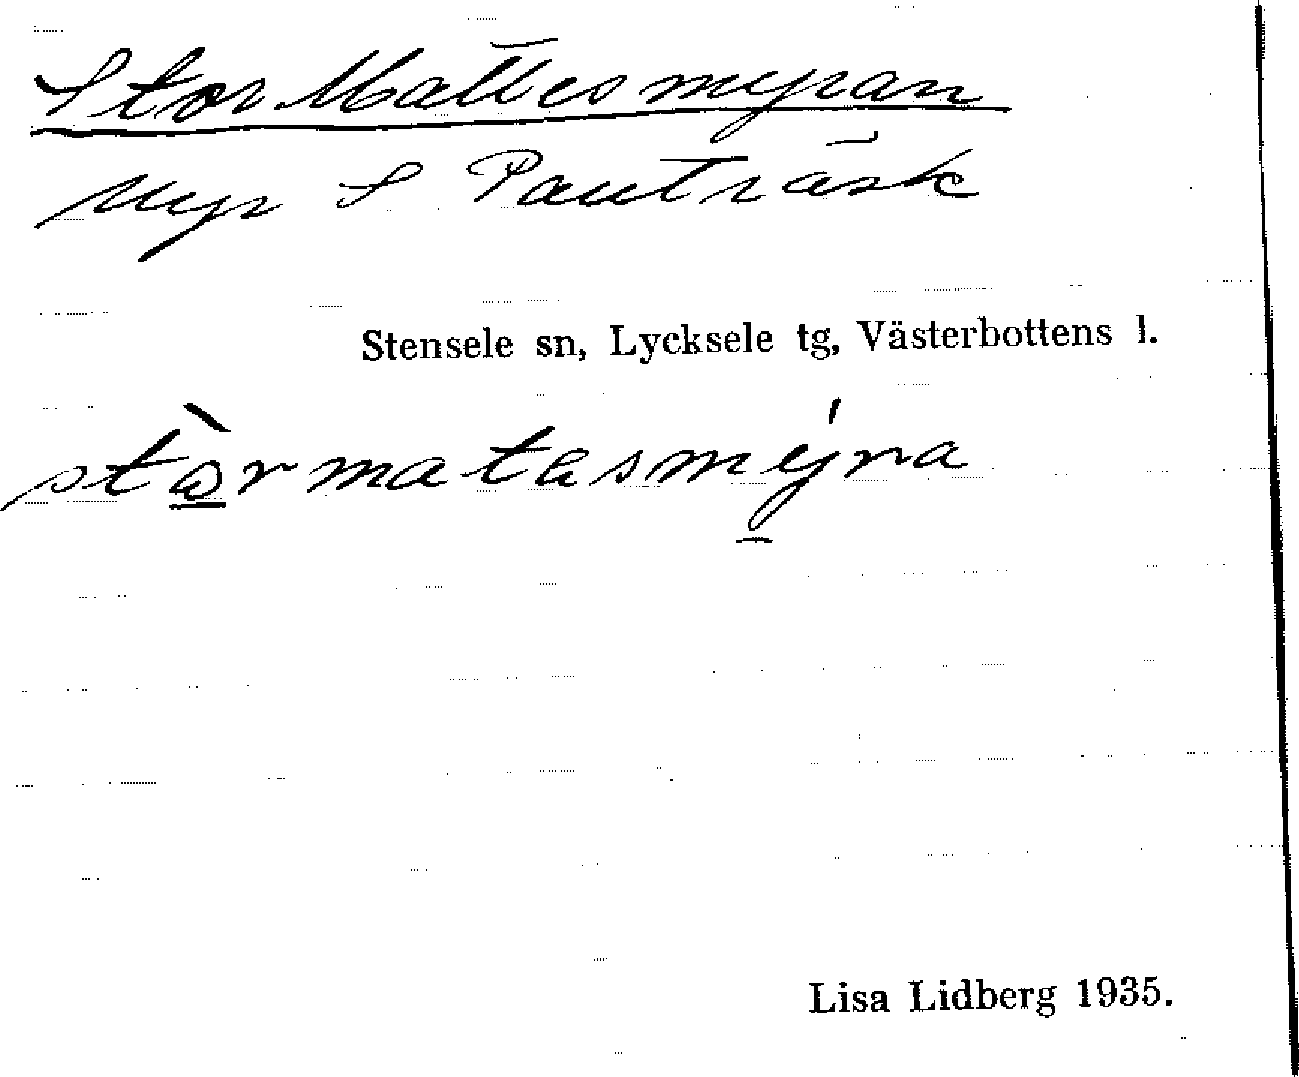 Stor Mattesmyran
Myr S Pauträsk
Stensele sn, Lycksele tg, Västerbottens l.
stòrmatasmýra
Lisa Lidberg 1935.